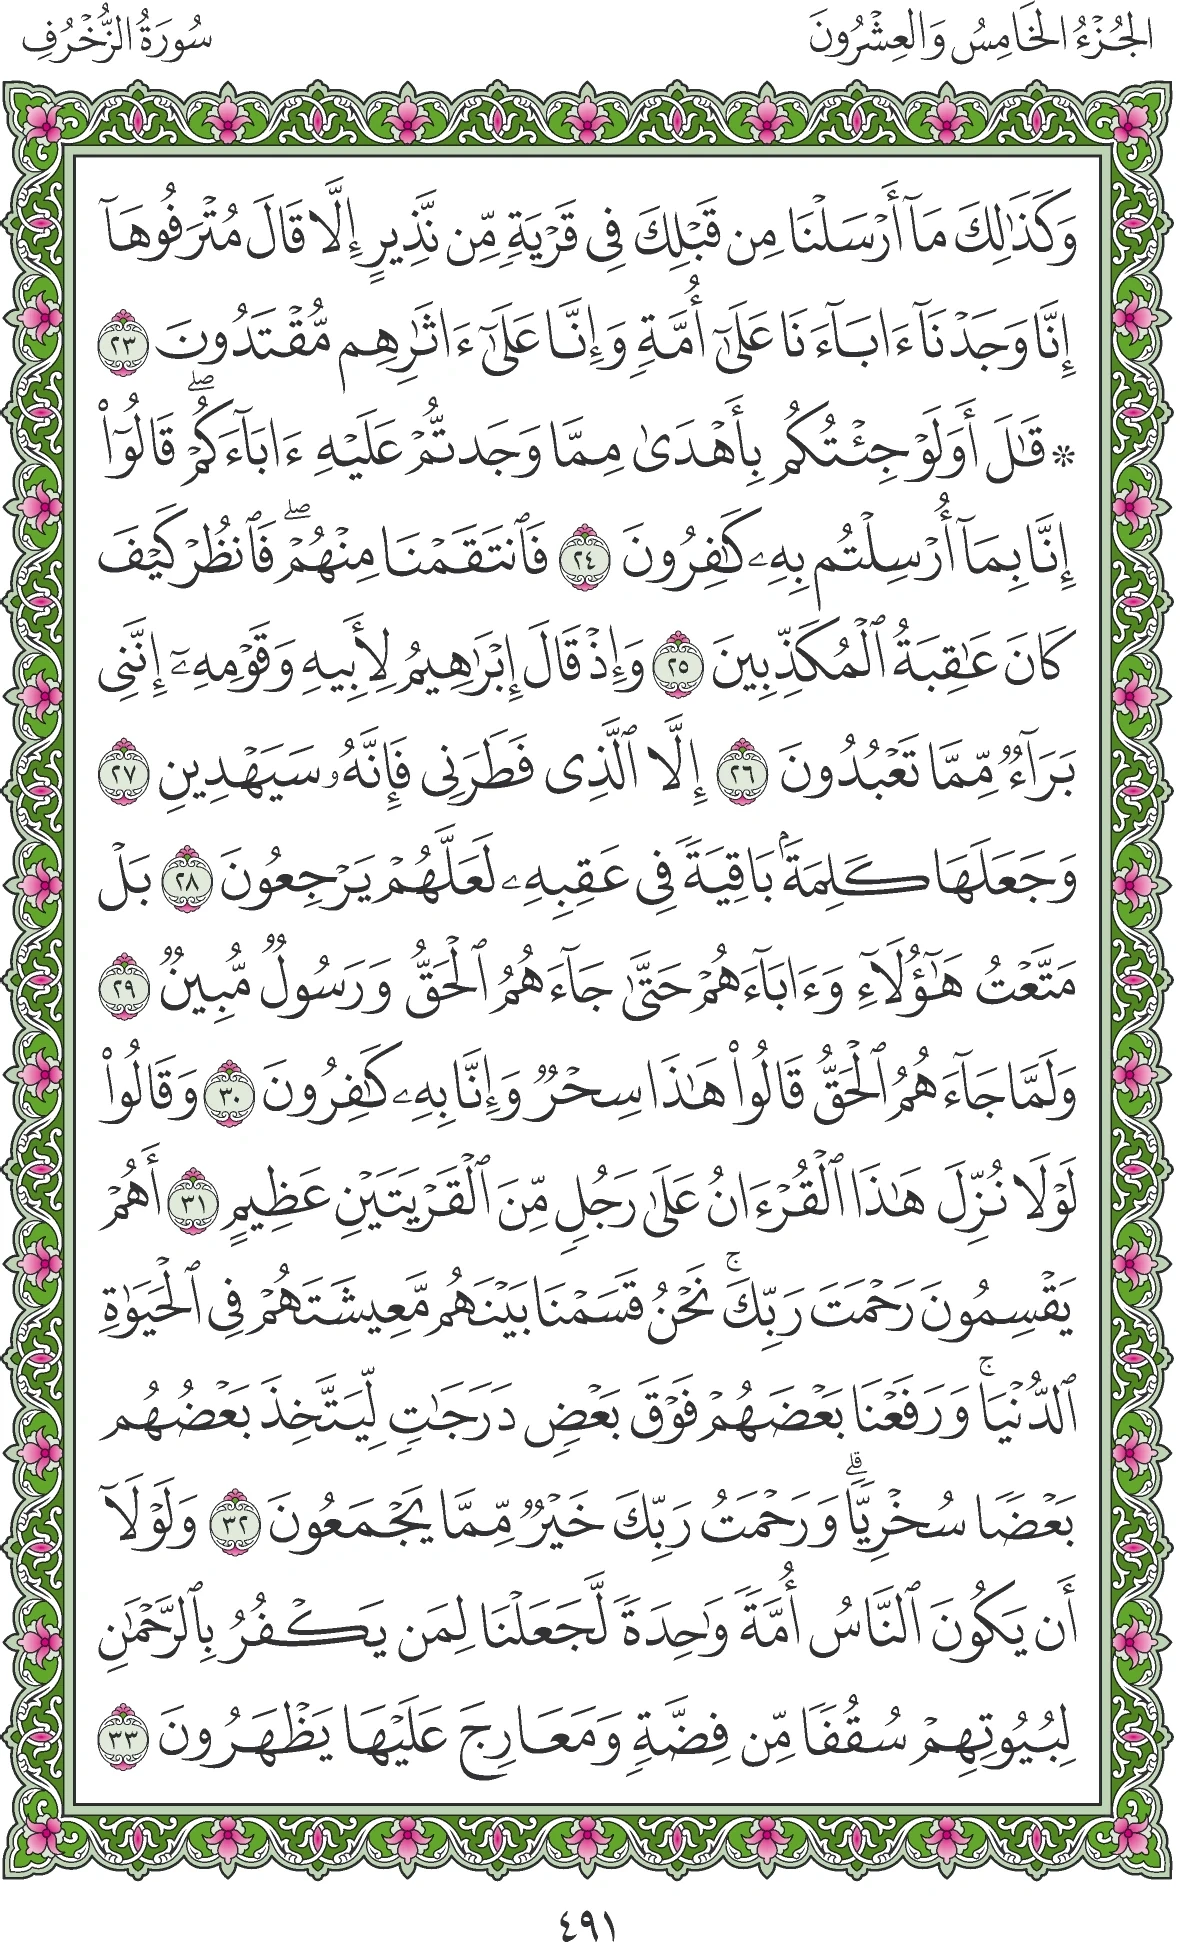 الجُزْءُ الخَامِسُ وَالعِشْرُونَ
سُورَةُ الزُّخْرُفِ
وَكَذَٰلِكَ مَآ أَرْسَلْنَا مِن قَبْلِكَ فِى قَرْيَةٍ مِّن نَّذِيرٍ إِلَّا قَالَ مُتْرَفُوهَآ
إِنَّا وَجَدْنَآ ءَابَآءَنَا عَلَىٰٓ أُمَّةٍ وَإِنَّا عَلَىٰٓ ءَاثَٰرِهِم مُّقْتَدُونَ ٢٣
۞ قَٰلَ أَوَلَوْ جِئْتُكُم بِأَهْدَىٰ مِمَّا وَجَدتُّمْ عَلَيْهِ ءَابَآءَكُمْ ۖ قَالُوٓا۟
إِنَّا بِمَآ أُرْسِلْتُم بِهِۦ كَٰفِرُونَ ٢٤ فَٱنتَقَمْنَا مِنْهُمْ ۖ فَٱنظُرْ كَيْفَ
كَانَ عَٰقِبَةُ ٱلْمُكَذِّبِينَ ٢٥ وَإِذْ قَالَ إِبْرَٰهِيمُ لِأَبِيهِ وَقَوْمِهِۦٓ إِنَّنِى
بَرَآءٌ مِّمَّا تَعْبُدُونَ ٢٦ إِلَّا ٱلَّذِى فَطَرَنِى فَإِنَّهُۥ سَيَهْدِينِ ٢٧
وَجَعَلَهَا كَلِمَةًۢ بَاقِيَةً فِى عَقِبِهِۦ لَعَلَّهُمْ يَرْجِعُونَ ٢٨ بَلْ
مَتَّعْتُ هَٰٓؤُلَآءِ وَءَابَآءَهُمْ حَتَّىٰ جَآءَهُمُ ٱلْحَقُّ وَرَسُولٌ مُّبِينٌ ٢٩
وَلَمَّا جَآءَهُمُ ٱلْحَقُّ قَالُوا۟ هَٰذَا سِحْرٌ وَإِنَّا بِهِۦ كَٰفِرُونَ ٣٠ وَقَالُوا۟
لَوْلَا نُزِّلَ هَٰذَا ٱلْقُرْءَانُ عَلَىٰ رَجُلٍ مِّنَ ٱلْقَرْيَتَيْنِ عَظِيمٍ ٣١ أَهُمْ
يَقْسِمُونَ رَحْمَتَ رَبِّكَ ۚ نَحْنُ قَسَمْنَا بَيْنَهُم مَّعِيشَتَهُمْ فِى ٱلْحَيَوٰةِ
ٱلدُّنْيَا ۚ وَرَفَعْنَا بَعْضَهُمْ فَوْقَ بَعْضٍ دَرَجَٰتٍ لِّيَتَّخِذَ بَعْضُهُم
بَعْضًا سُخْرِيًّا ۗ وَرَحْمَتُ رَبِّكَ خَيْرٌ مِّمَّا يَجْمَعُونَ ٣٢ وَلَوْلَآ
أَن يَكُونَ ٱلنَّاسُ أُمَّةً وَٰحِدَةً لَّجَعَلْنَا لِمَن يَكْفُرُ بِٱلرَّحْمَٰنِ
لِبُيُوتِهِمْ سُقُفًا مِّن فِضَّةٍ وَمَعَارِجَ عَلَيْهَا يَظْهَرُونَ ٣٣
٤٩١